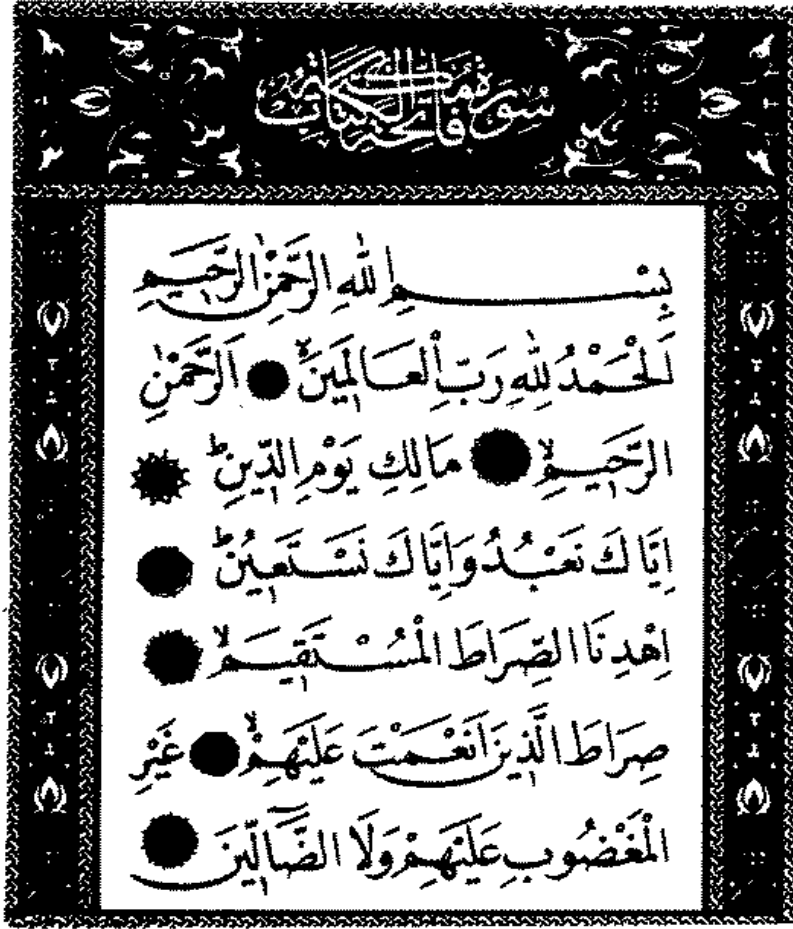 سورة فاتحة الكتاب مكية
بِسْمِ اللّٰهِ الرَّحْمٰنِ الرَّحِيمِ
اَلْحَمْدُ لِلّٰهِ رَبِّ الْعَالَمِينَۙ اَلرَّحْمٰنِ
الرَّحِيمِۙ مَالِكِ يَوْمِ الدِّينِۜ
اِيَّاكَ نَعْبُدُ وَاِيَّاكَ نَسْتَعِينُۜ
اِهْدِنَا الصِّرَاطَ الْمُسْتَقِيمَۙ
صِرَاطَ الَّذِينَ اَنْعَمْتَ عَلَيْهِمْۙ غَيْرِ
الْمَغْضُوبِ عَلَيْهِمْ وَلَا الضَّٓالِّينَ